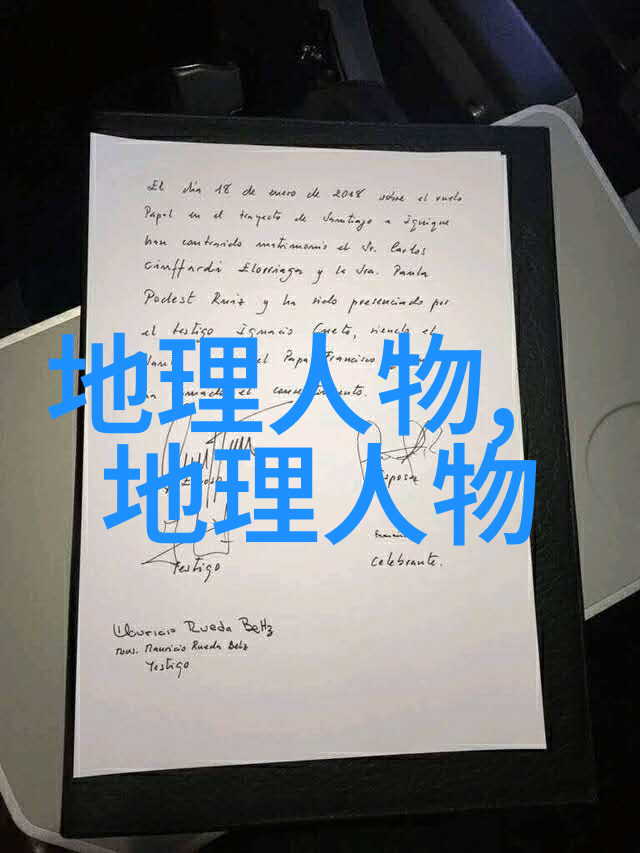 El día 18 de enero de 2018 sobre el vuelo
Papal en el trayecto de Santiago a Iquique
han contraido matrimonio el Sr. Carlos
Ciuffardi Elorriaga y la Sra. Paula
Podest Ruiz y ha sido presenciado por
el testigo Ignacio Cueto, siendo el
el Papa Francisco
el consentimiento.
地理人物,
地理人物
Esposa
Celebrante.
Testigo
Mauricio Rueda Beltz
Mons. Mauricio Rueda Beltz
Testigo